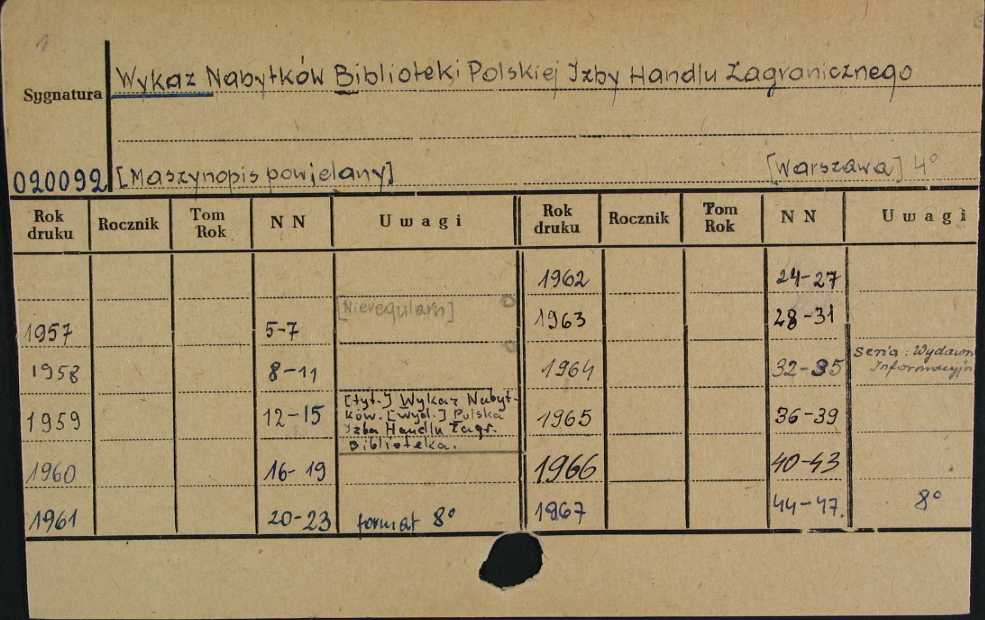 1
Wykaz Nabytków Biblioteki Polskiej Izby Handlu Zagranicznego
Sygnatura
020092 [Maszynopis powielany] [Warszawa] 4°
Rok druku Rocznik Tom Rok N N Uwagi Rok druku Rocznik Tom Rok N N Uwagi
1962 24-27
1957 5-7 [Nieregularn] 1963 28-31
1958 8-11 1964 32-35 seria: Wydawn Informacyjn
1959 12-15 [tyt.] Wykaz Nabyt-
ków. [wyd.] Polska
Izba Handlu Zagr.
Biblioteka. 1965 36-39
1960 16-19 1966 40-43
1961 20-23 format 8° 1967 44-47. 8°